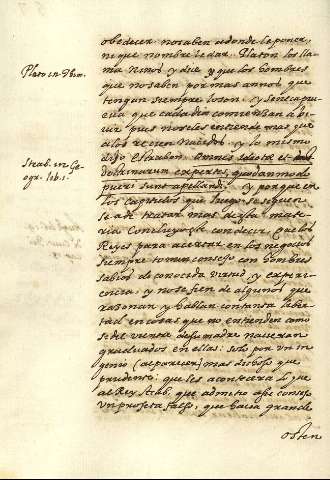 obedecer no saben adonde le poner,
ni que nombre le dar. Platon los lla
ma niños y dize y que los hombres
Platon in Thim.
que no saben por mas annos que
tengan siempre loson, y
que cada dia comienzan a bi
uir pues no se les entiende mas que
a los recien nacidos y lo mismo
Strab. in Ge
ogr. lib. 1.
dijo Estrabon. Omnis idiota et
doctrinarum expers, quodam modo
pueri sunt apellandi, y porque en
los capitulos que luego se siguen
se a de tratar mas de esta mate
ria Concluyo con decir, que los
Reyes para acertar en los negocios
siempre tomen consejo con hombres
sabios de conocida virtud, y experi
encia, y no se fien de algunos que
razonan y hablan con tanta liber
tad en cosas que no entienden como
si del vientre de su madre nacieran
graduados en ellas: solo por un in
genio (al parecer) mas dichoso que
prudente: que les acontecera lo que
al Rey Acab, que admitio a su consejo
un profeta falso, que hacia grande
osten